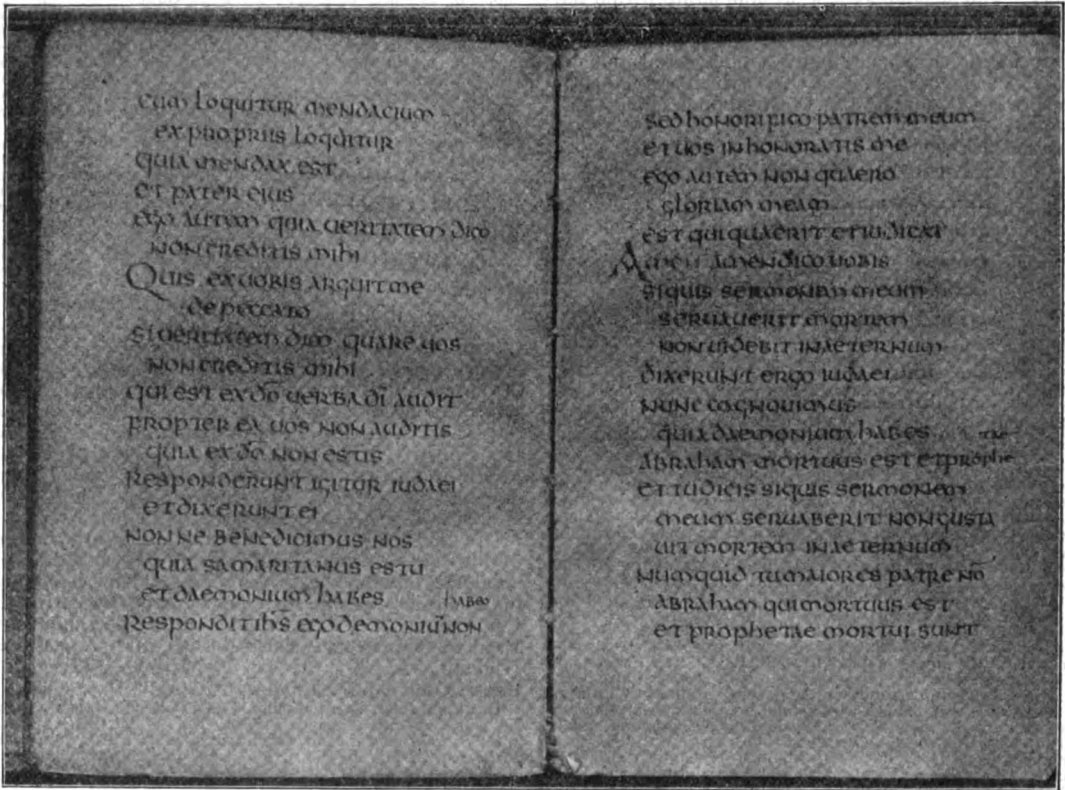 cum loquitur mendacium
ex propriis loquitur
quia mendax est
et pater eius
ego autem quia ueritatem dico
non creditis mihi
Quis ex uobis arguit me
de peccato
si ueritatem dico quare uos
non creditis mihi
qui est ex dō uerba dī audit
propter ea uos non auditis
quia ex dō non estis
Responderunt igitur iudaei
et dixerunt ei
nonne benedicimus nos
quia samaritanus es tu
et daemonium habes
habeo
Respondit ihs̄ ego demoniū non
sed honorifico patrem meum
et uos inhonoratis me
ego autem non quaero
gloriam meam
est qui quaerit et iudicat
Amen amen dico uobis
siquis sermonem meum
seruauerit mortem
non uidebit in aeternum
dixerunt ergo iudaei
nunc cognouimus
quia daemonium habes
tae
Abraham mortuus est et prophe
et tu dicis siquis sermonem
meum seruaberit non gusta
uit mortem in aeternum
Numquid tu maior es patre nō
abraham qui mortuus est
et prophetae mortui sunt